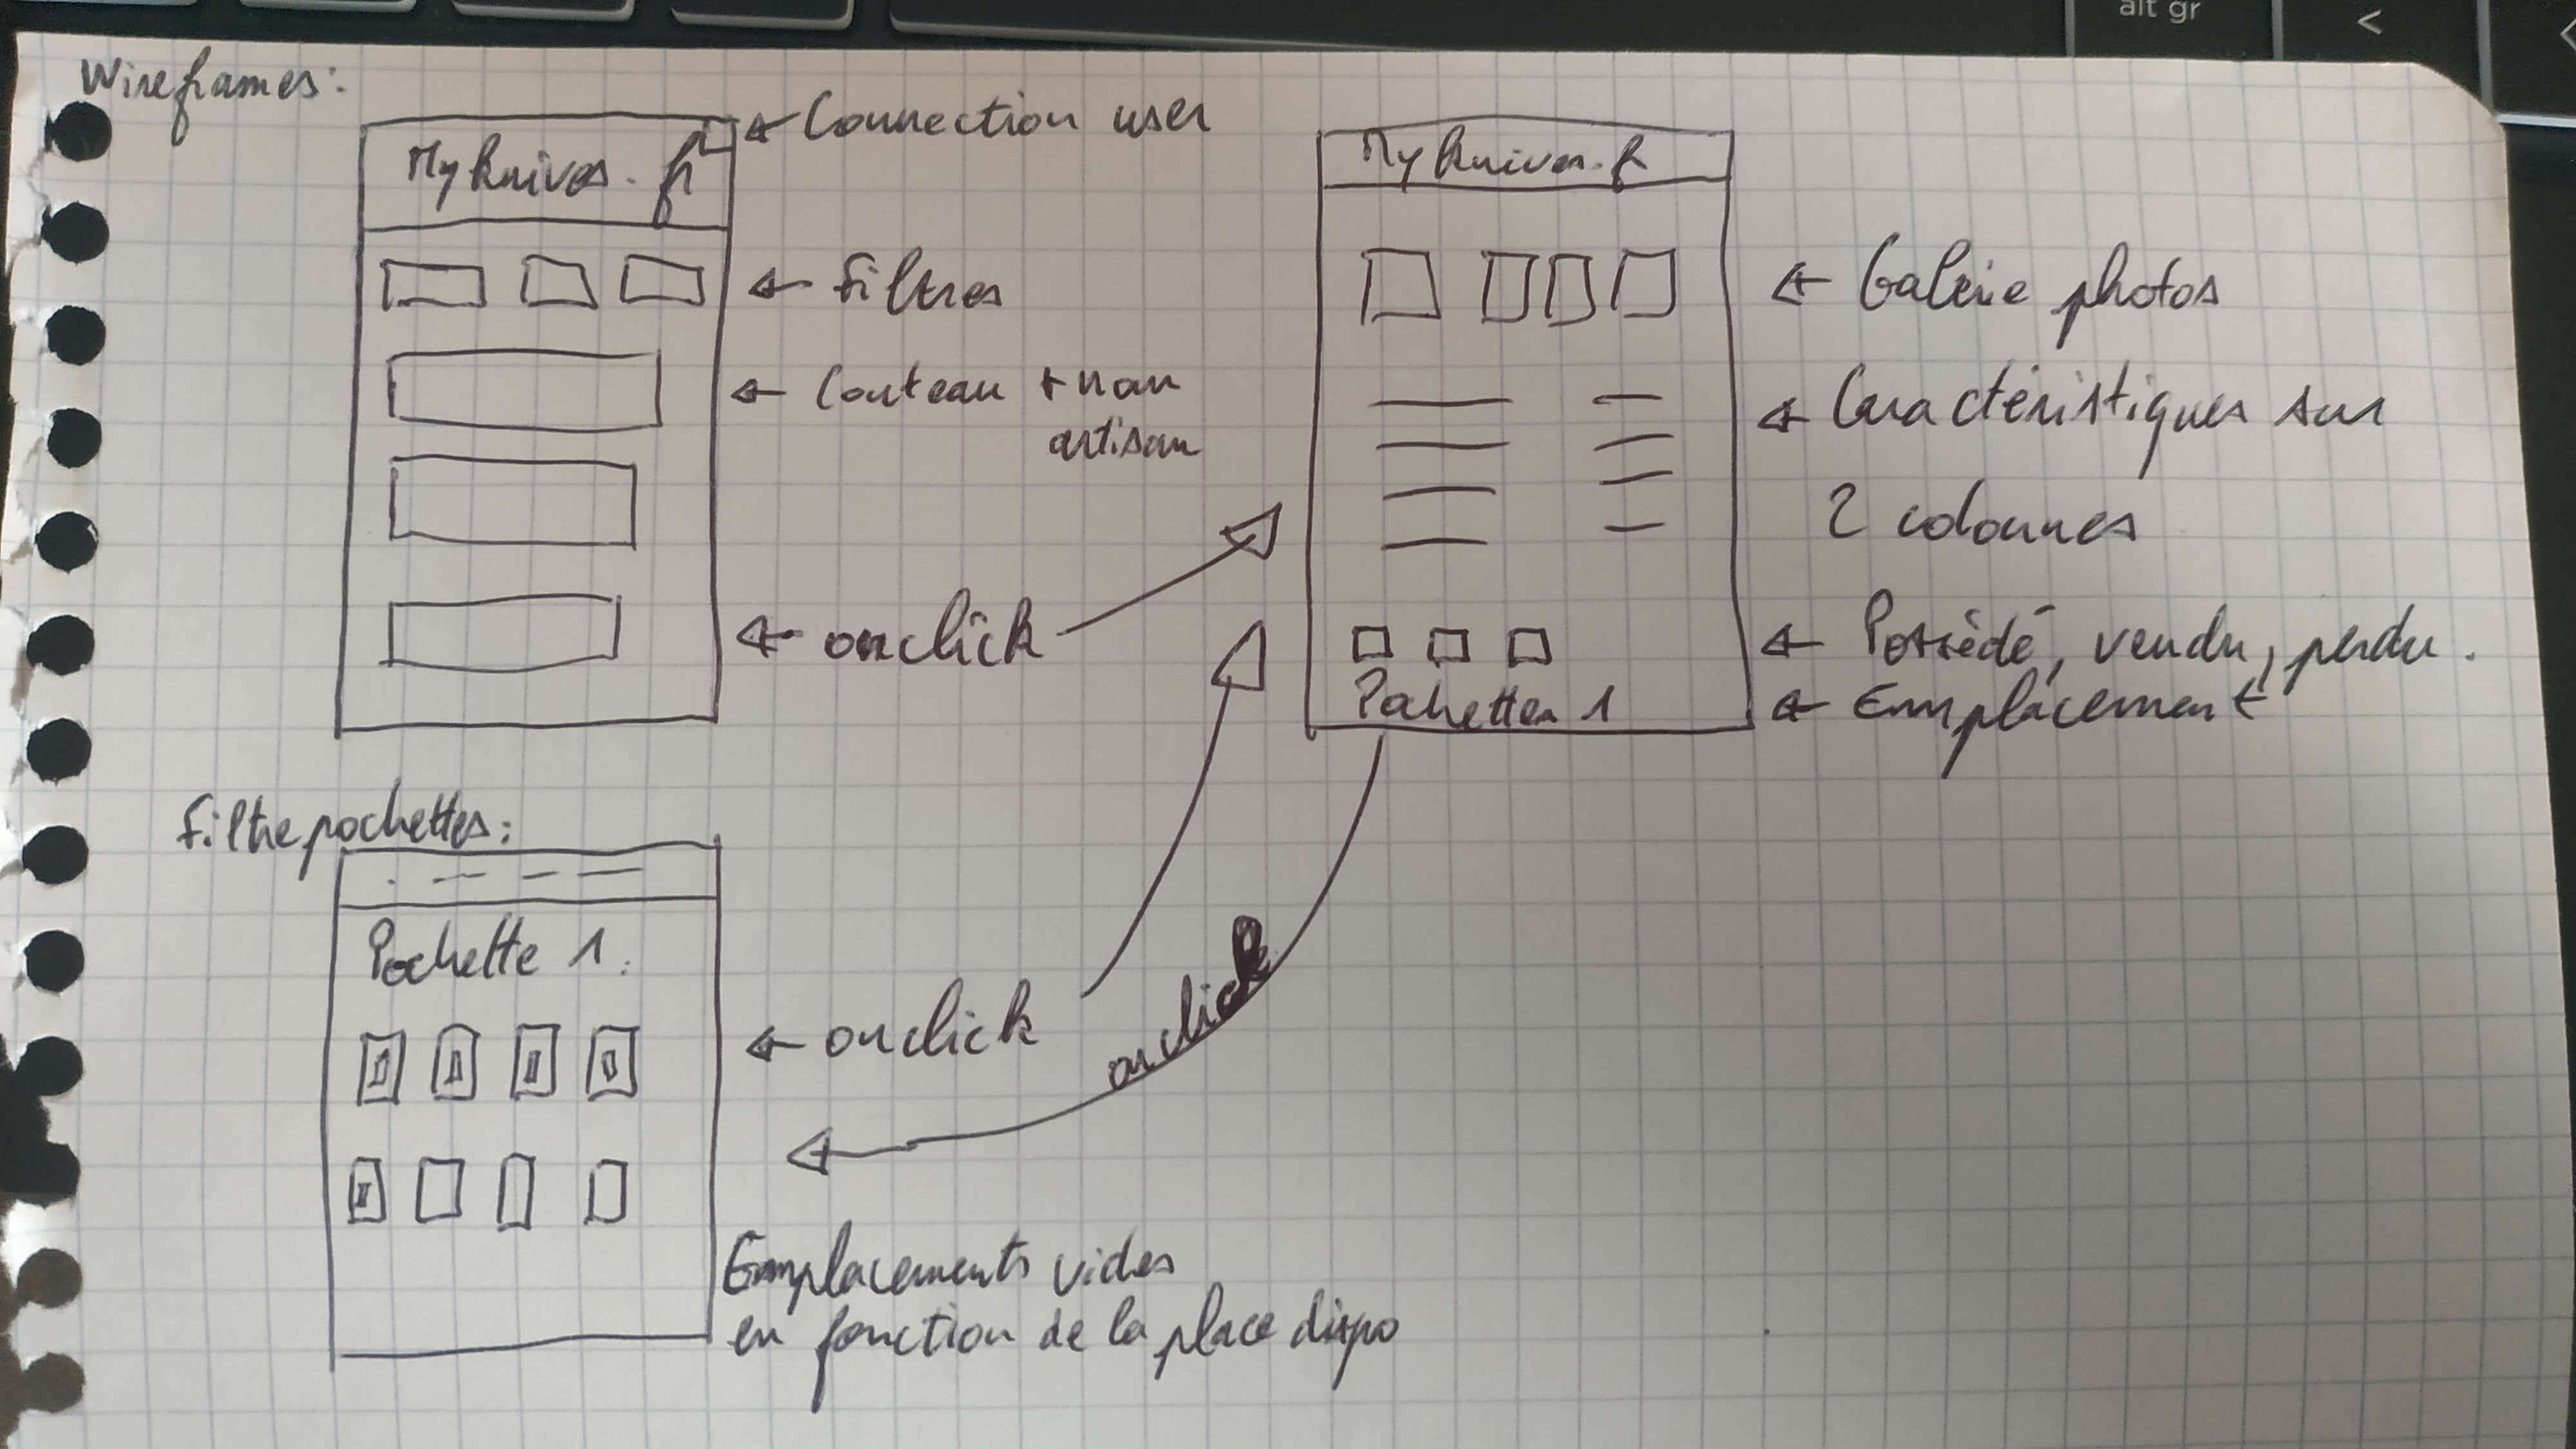 alt gr
<
Wireframes:
My knives.fr
Connection user
filtres
Couteau + nom
artisan
onclick
My knives.fr
Galerie photos
Caractéristiques sur
2 colonnes
Possèdé, vendu, perdu.
Pochettes 1
Emplacement
filtre pochettes:
Pochette 1.
onclick
onclick
Emplacements vides
en fonction de la place dispo